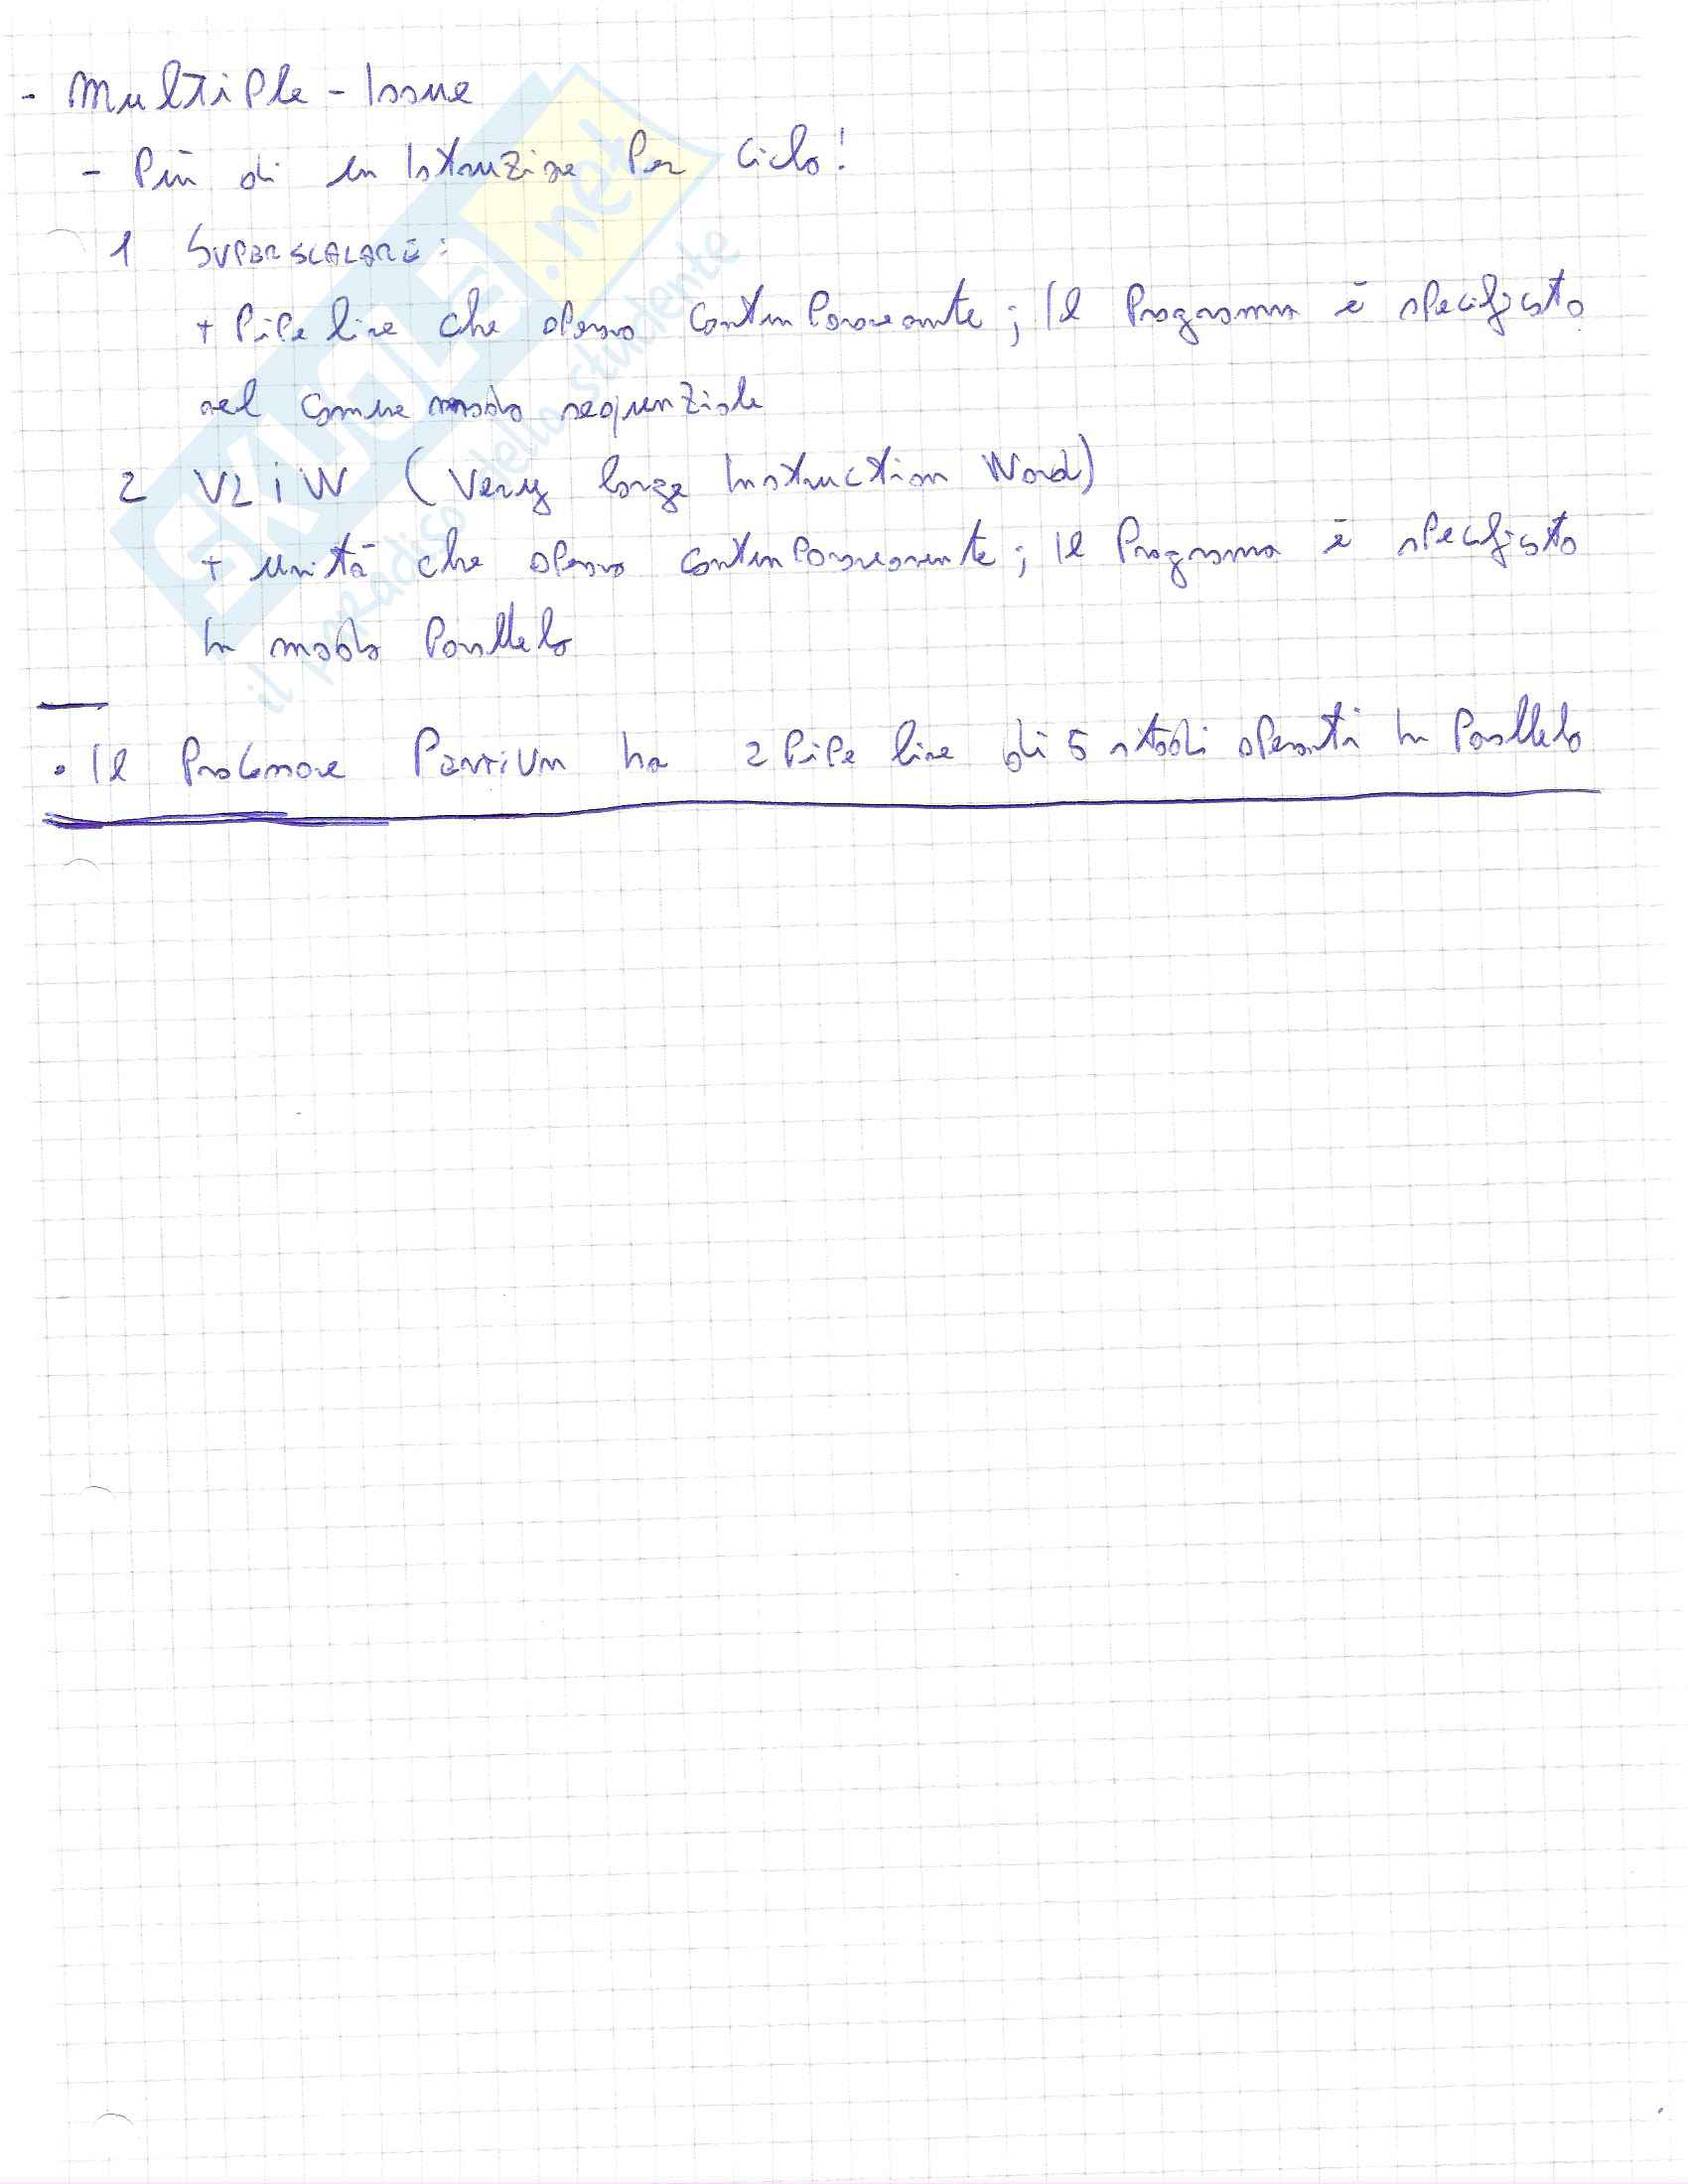 - Multiple - Issue
- Più di un Istruzione Per Ciclo!
1 SUPERSCALARE:
+ Pipe line che operano contemporaneamente; Il Programma è specificato
nel comune modo sequenziale
2 VLIW (Very large Instruction Word)
+ unità che operano contemporaneamente; Il Programma è specificato
In modo Parallelo
• Il Processore Pentium ha 2 Pipe line di 5 stadi operanti In Parallelo
SKUOLA.net
il paradiso dello studente